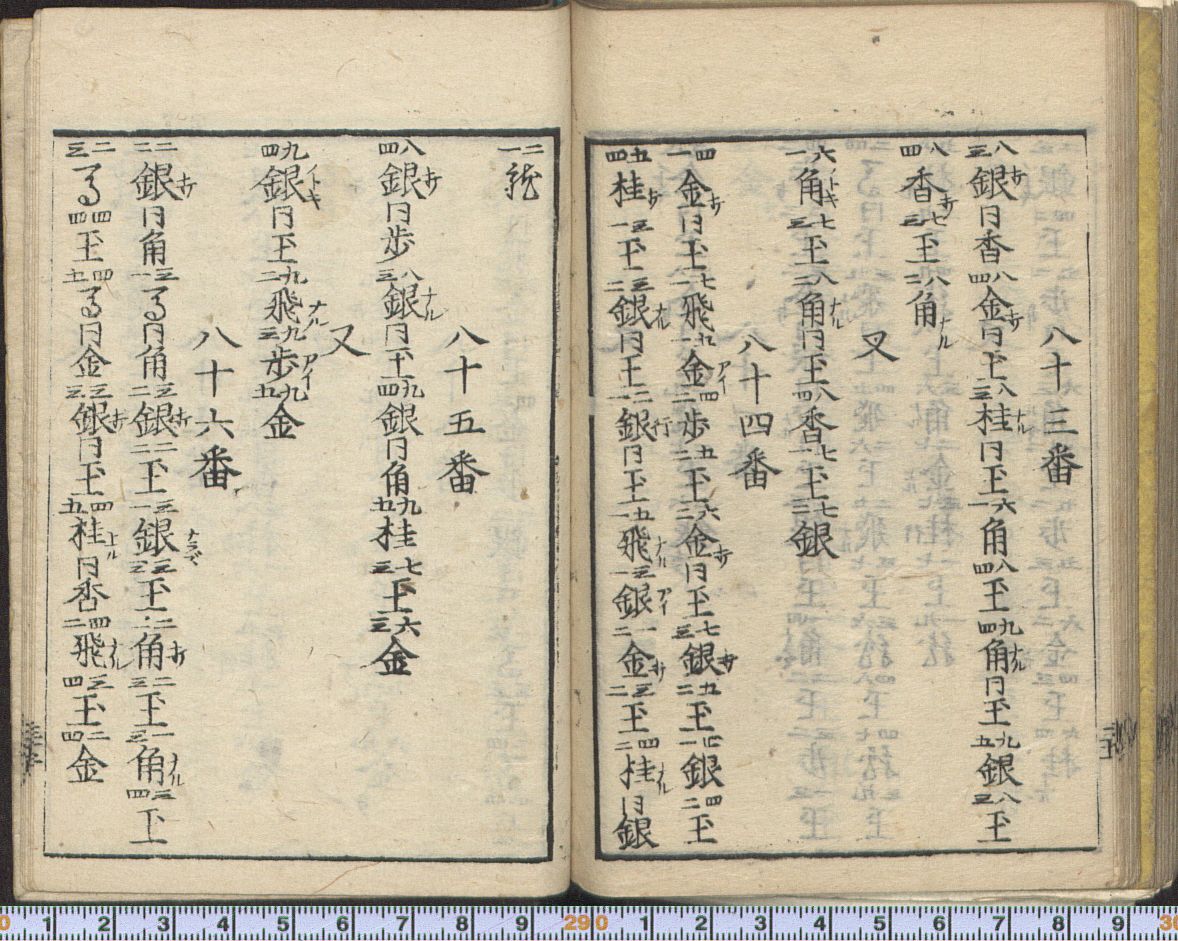 八十三番
八三銀打同香八四金打同王八三桂ナル同王六一角八四王九四角ナル同王九五銀八三王
八四香打七三王八二角ナル
又
六一角ノトキ七三王八二角ナル同王八四香七一王七二銀
八十四番
四一金打同王七一飛六一金アイ四二歩五二王六二金打同王七三銀打五二王四一銀四二王
五四桂打三一王三二銀ナル同王二一銀行同王五一飛ナル三一銀アイ一二金打三二王四二桂ナル同銀
二一龍
八十五番
八四銀打同歩八三銀ナル同王九四銀同角九五桂七三王六三金
又
九四銀ノトキ同王九二飛ナル九三歩アイ九五金
八十六番
二二銀打同角三一馬同角三二銀打二二王三一銀ナラズ三三王二二角打二三王一三角ナル三四王
二三馬四四王四五馬同金三三銀打同王四五桂上ル同香四二飛ナル三四王二四金